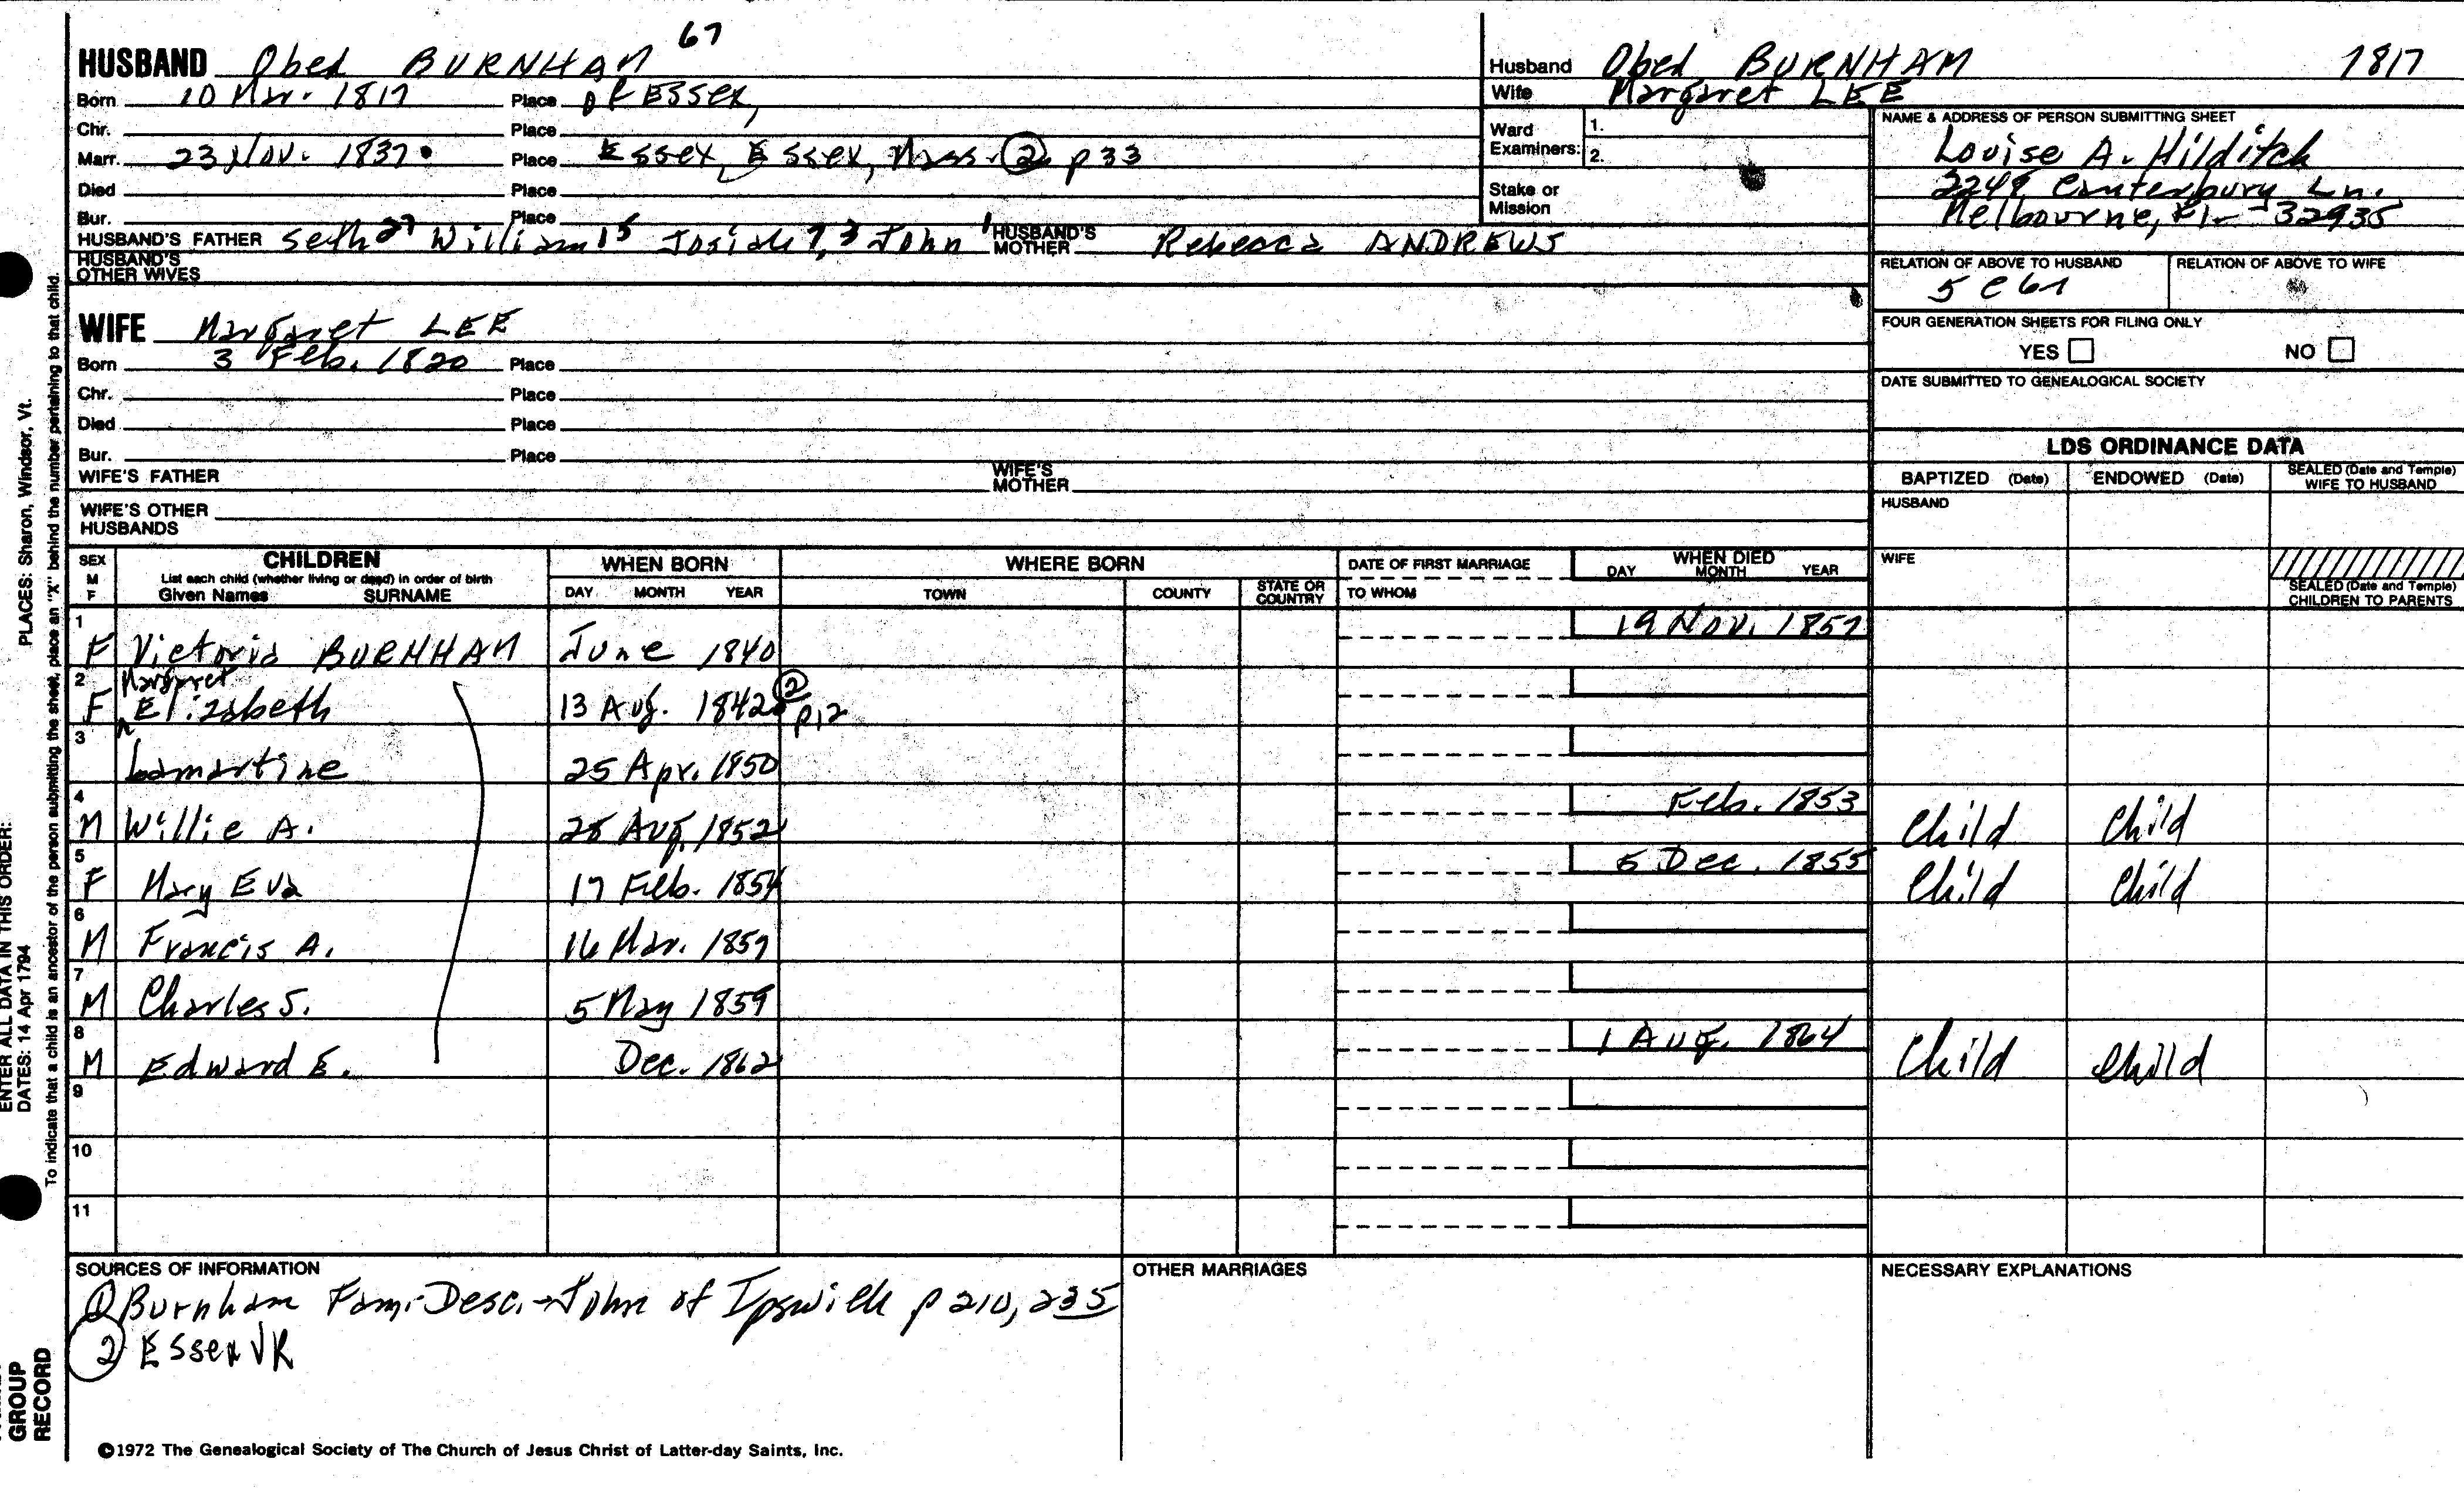 67
HUSBAND Obed BURNHAM
Born 10 Mar. 1817 Place of Essex,
Chr. Place
Marr. 23 Nov. 1837 Place Essex, Essex, Mass. ② p 33
Died Place
Bur. Place
HUSBAND'S FATHER Seth 27 William 15 Josiah 7, 3 John 1 HUSBAND'S MOTHER Rebecca ANDREWS
HUSBAND'S OTHER WIVES
WIFE Margaret LEE
Born 3 Feb. 1820 Place
Chr. Place
Died Place
Bur. Place
WIFE'S FATHER WIFE'S MOTHER
WIFE'S OTHER HUSBANDS
Husband Obed BURNHAM 1817
Wife Margaret LEE
Ward Examiners: 1.
2.
Stake or Mission
NAME & ADDRESS OF PERSON SUBMITTING SHEET
Louise A. Hilditch
2249 Canterbury Ln.
Melbourne, Fl - 32935
RELATION OF ABOVE TO HUSBAND RELATION OF ABOVE TO WIFE
5 C 6r
FOUR GENERATION SHEETS FOR FILING ONLY
YES NO
DATE SUBMITTED TO GENEALOGICAL SOCIETY
LDS ORDINANCE DATA
BAPTIZED (Date) ENDOWED (Date) SEALED (Date and Temple) WIFE TO HUSBAND
HUSBAND
WIFE
SEALED (Date and Temple) CHILDREN TO PARENTS
SEX M F CHILDREN WHEN BORN WHERE BORN DATE OF FIRST MARRIAGE WHEN DIED
List each child (whether living or dead) in order of birth
Given Names SURNAME DAY MONTH YEAR TOWN COUNTY STATE OR COUNTRY TO WHOM DAY MONTH YEAR
1 F Victoria BURNHAM June 1840 19 Nov. 1857
2 F Margaret Elizabeth 13 Aug. 1842 ② p12
3 Lamartine 25 Apr. 1850
4 M Willie A. 28 Aug. 1852 Feb. 1853 Child Child
5 F Mary Eva 17 Feb. 1854 6 Dec. 1855 Child Child
6 M Francis A. 16 Mar. 1857
7 M Charles S. 5 May 1859
8 M Edward E. Dec. 1862 1 Aug. 1864 Child Child
9
10
11
SOURCES OF INFORMATION
① Burnham Fam. Desc. - John of Ipswich p 210, 235
② Essex VR
OTHER MARRIAGES
NECESSARY EXPLANATIONS
©1972 The Genealogical Society of The Church of Jesus Christ of Latter-day Saints, Inc.
GROUP RECORD
ENTER ALL DATA IN THIS ORDER:
DATES: 14 Apr 1794
PLACES: Sharon, Windsor, Vt.
To indicate that a child is an ancestor of the person submitting the sheet, place an "X" behind the number pertaining to that child.